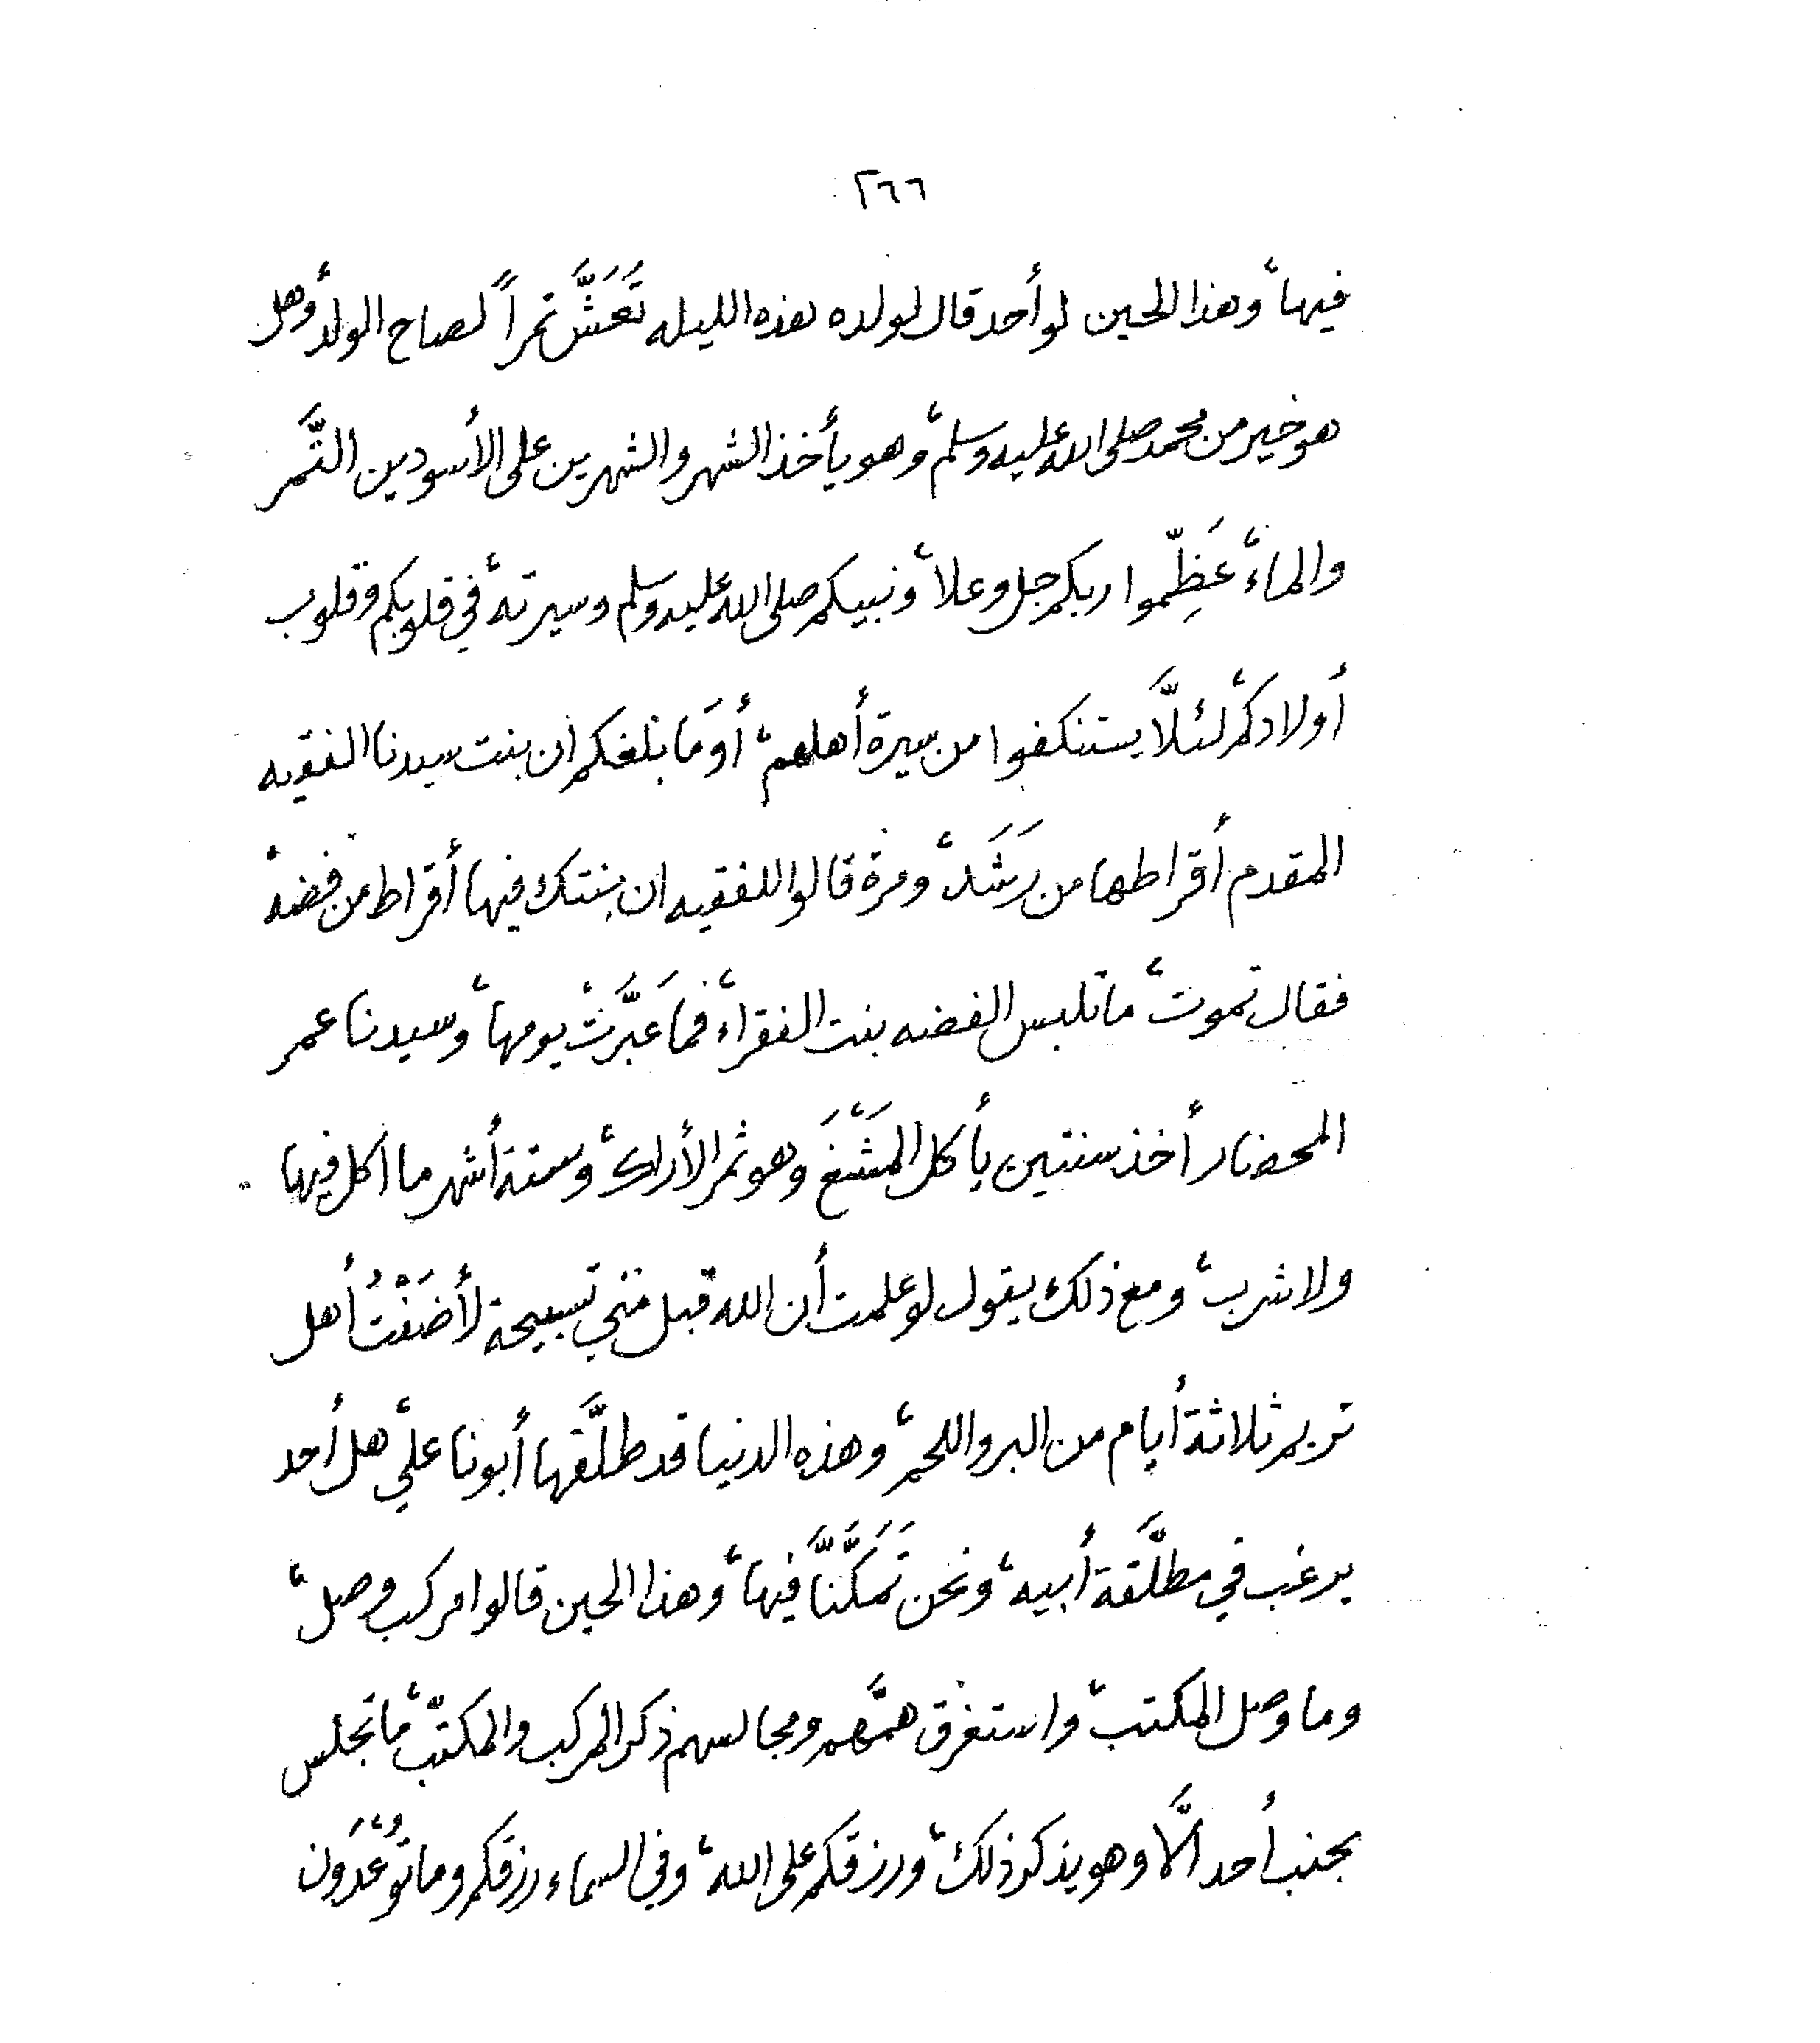 ٢٦٦
فيها، وهذا الحين لو أحد قال لولده هذه الليله تَعَشَّ تمراً لصاح الولد، أوهل
هو خير من محمد صلى الله عليه وسلم، وهو يأخذ الشهر والشهرين على الأسودين التَّمر
والماء، عَظِّموا ربكم جل وعلا، ونبيكم صلى الله عليه وسلم وسيرته، في قلوبكم وقلوب
أولادكم، لئلَّا يستنكفوا من سيرة أهلهم، أوَما بلغكم ان بنت سيدنا الفقيه
المقدم أقراطها من رَشَد، ومرة قالوا للفقيه ان بنتك فيها أقراط من فضه،
فقال تموت، ما تلبس الفضه بنت الفقراء، فما عَبَّرَتْ يومها، وسيدنا عمر
المحضار أخذ سنتين يأكل المَشَنْعَ وهو ثمر الأراك، وستة أشهر ما أكل فيها
ولا شرب، ومع ذلك يقول لو علمت أن الله قبل مني تسبيحة لأضَفْتُ أهل
تريم ثلاثة أيام من البر واللحم، وهذه الدنيا قد طلَّقها أبونا علي، هل أحد
يرغب في مطلَّقة أبيه، ونحن تَمَكَّنَّا فيها، وهذا الحين قالوا مركب وصل،
وما وصل المكتب، واستغرق همَّهم ومجالسهم ذكر المركب والمكتب، ما تجلس
بجنب أحد الَّا وهو يذكر ذلك، ورزقكم على الله، وفي السماء رزقكم وما تُوعَدُون